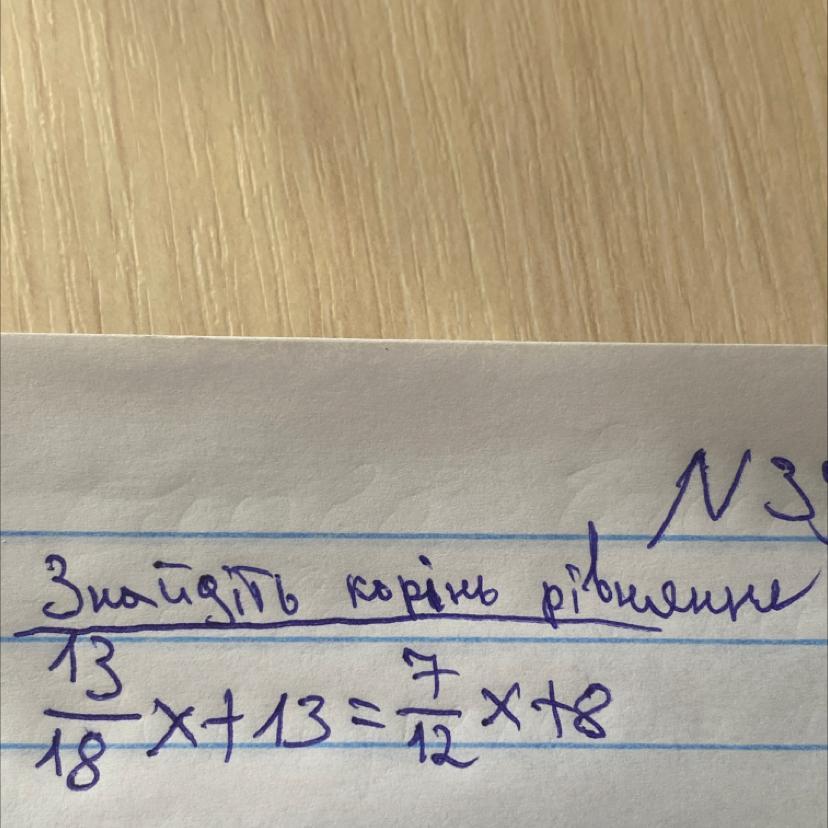 N 3
Знайдіть корінь рівняння
13/18 x + 13 = 7/12 x + 8